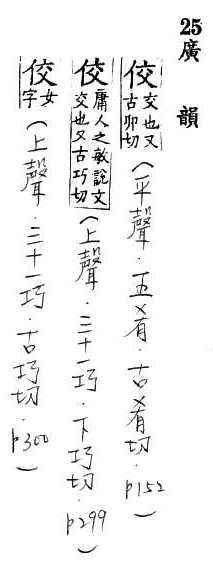 25廣韻
佼 交也又古卯切（平聲．五肴．古肴切．p152）
佼 庸人之敏說文交也又古巧切（上聲．三十一巧．下巧切．p299）
佼 女字（上聲．三十一巧．古巧切．p300）